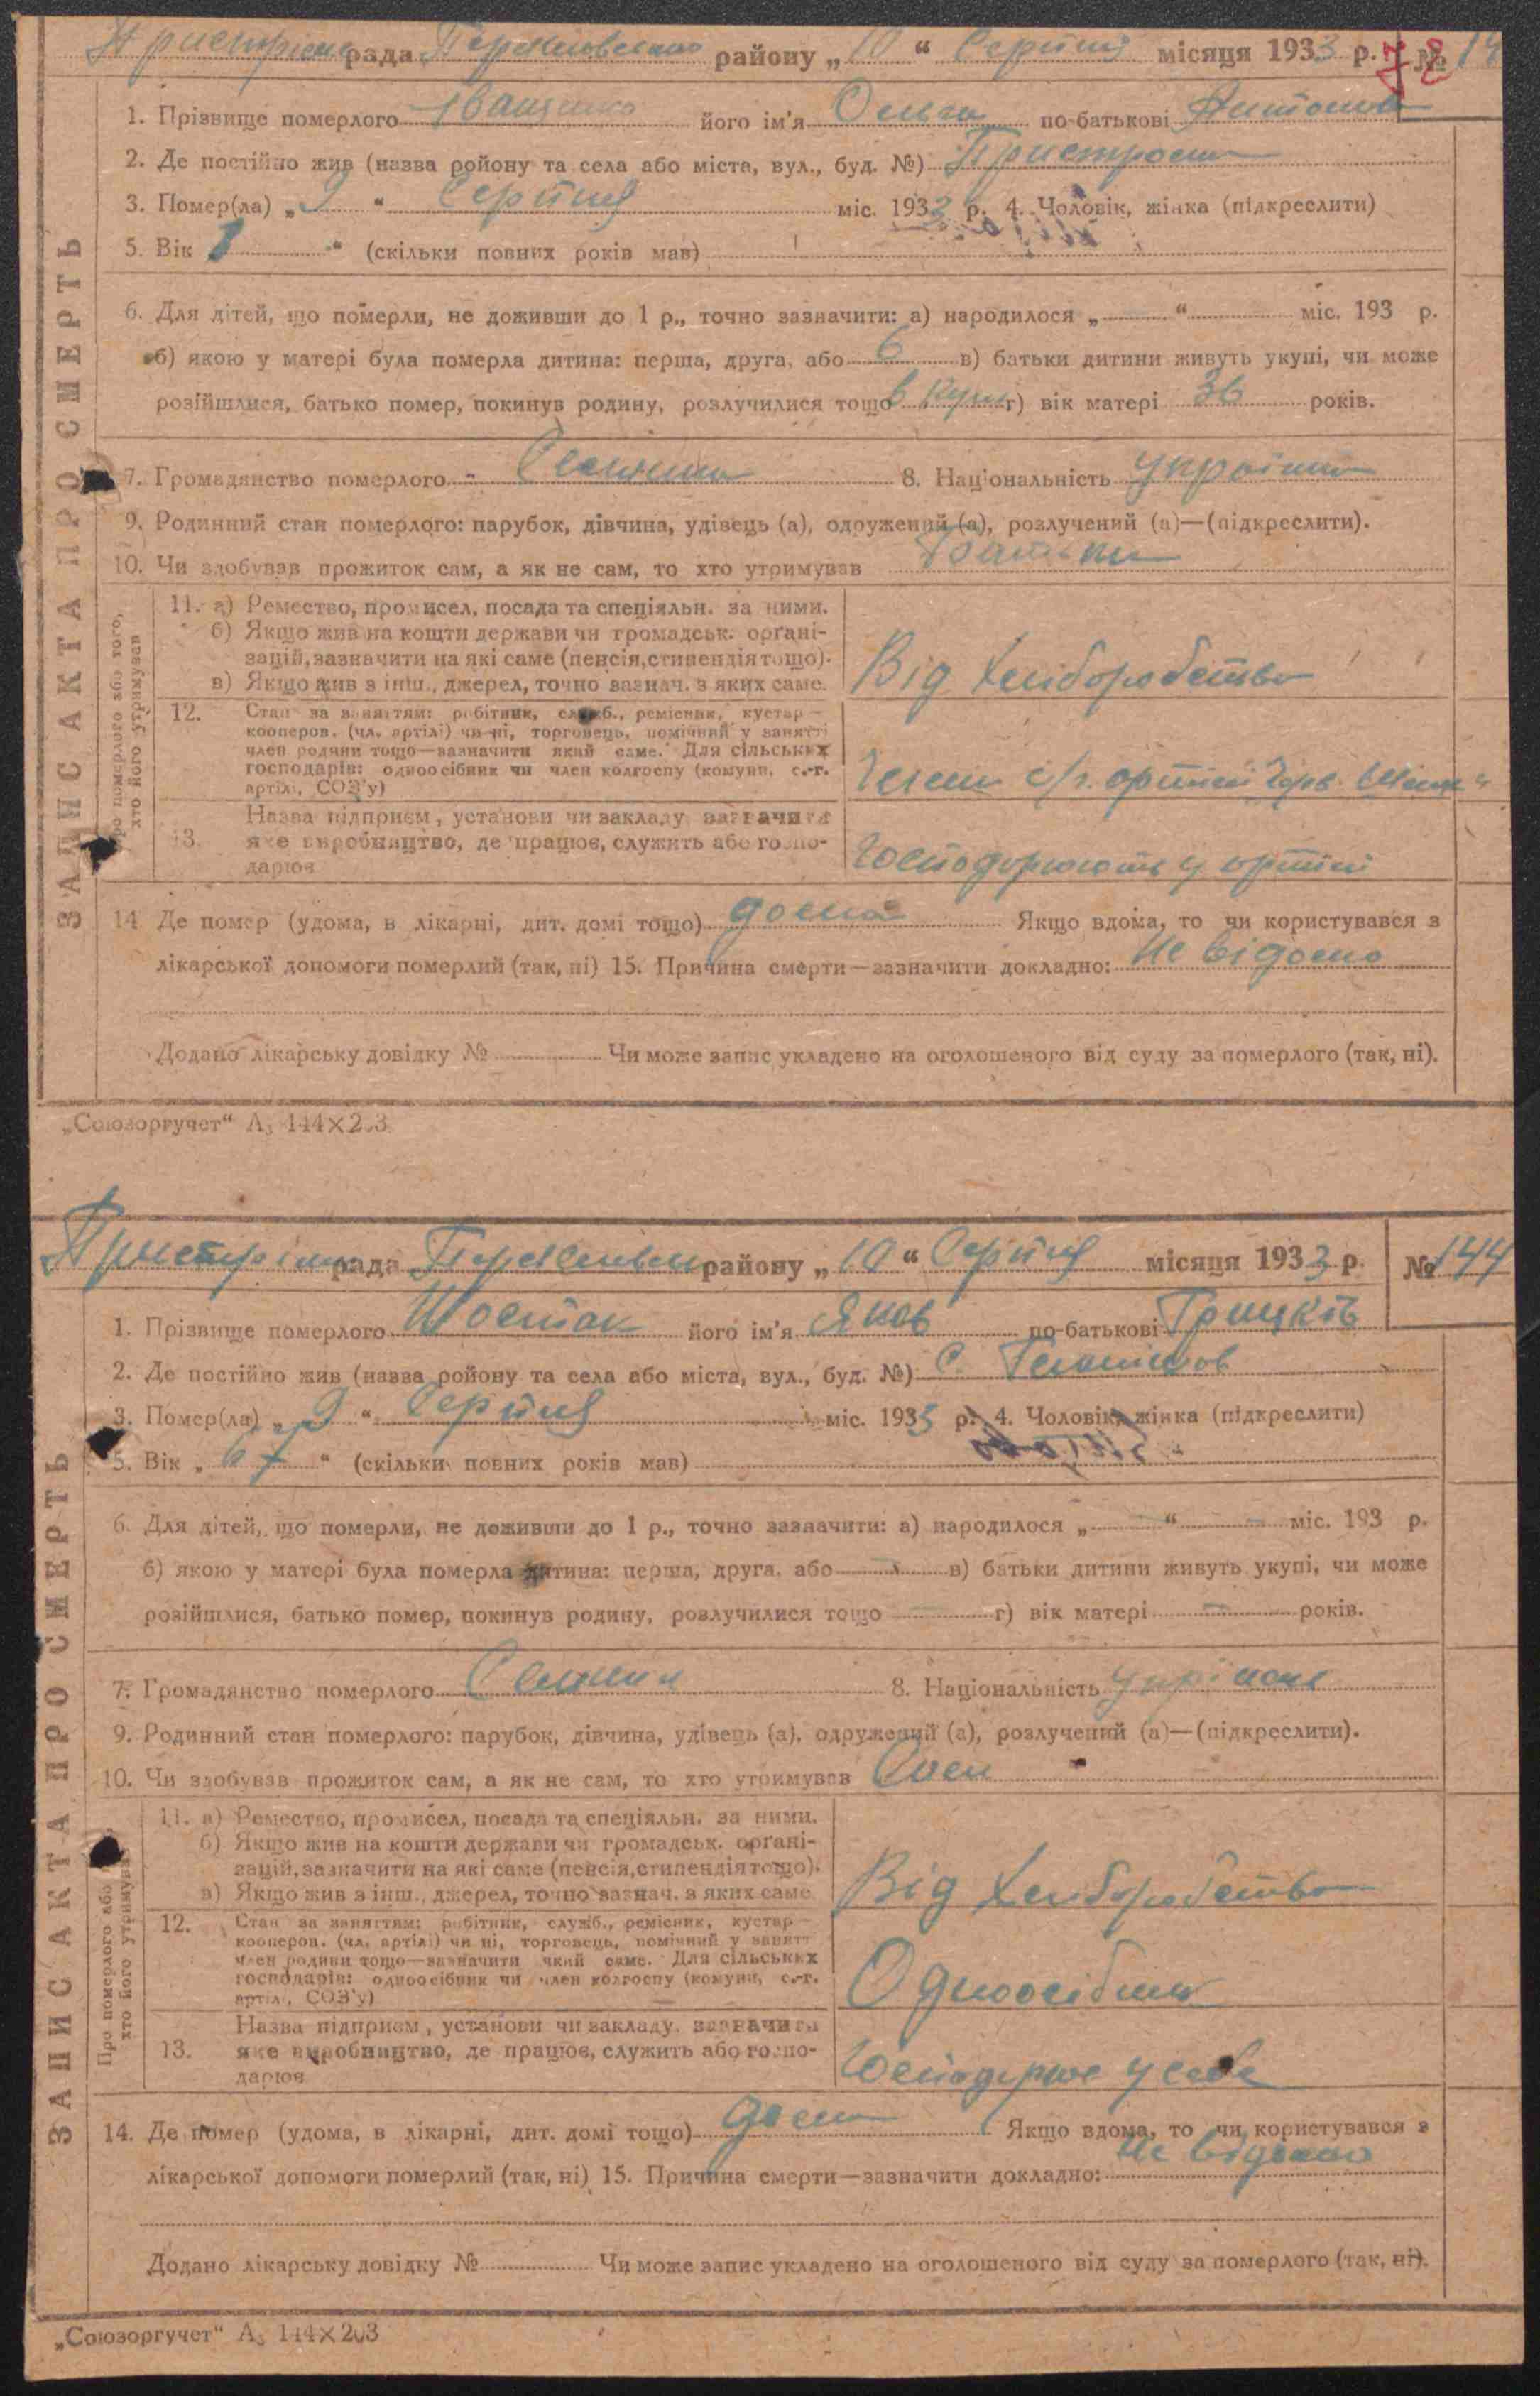 рада району „10“ Серпня місяця 1933 р. № 14
78
1. Прізвище померлого Іващенко його ім'я Ольга по-батькові Антонов
2. Де постійно жив (назва ройону та села або міста, вул., буд. №) Пристроми
3. Помер(ла) „9“ Серпня міс. 1933 р. 4. Чоловік, жінка (підкреслити)
5. Вік 1 “ (скільки повних років мав)
6. Для дітей, що померли, не доживши до 1 р., точно зазначити: а) народилося „ “ міс. 193 р.
б) якою у матері була померла дитина: перша, друга, або 6 в) батьки дитини живуть укупі, чи може
розійшлися, батько помер, покинув родину, розлучилися тощо в купі г) вік матері 36 років.
7. Громадянство померлого 8. Національність українка
9. Родинний стан померлого: парубок, дівчина, удівець (а), одружений (а), розлучений (а)—(підкреслити).
10. Чи здобував прожиток сам, а як не сам, то хто утримував Батьки
ЗАПИС АКТА ПРО СМЕРТЬ
Про померлого або того, хто його утримував
11. а) Ремество, промисел, посада та спеціяльн. за ними.
б) Якщо жив на кошти держави чи громадськ. орґані-
зацій, зазначити на які саме (пенсія, стипендія тощо).
в) Якщо жив з інш., джерел, точно зазнач. з яких саме. Від хліборобства
12. Стан за заняттям: робітник, служб., ремісник, кустар—
кооперов. (чл. артілі) чи ні, торговець, помічний у занятті
член родини тощо—зазначити який саме. Для сільських
господарів: одноосібник чи член колгоспу (комуни, с.-г.
артілі, СОЗ'у) Член с/г. артілі Черв.
Назва підприєм, установи чи закладу, зазначити
13. яке виробництво, де працює, служить або госпо-
дарює Господорюють у артілі
14 Де помер (удома, в лікарні, дит. домі тощо) дома Якщо вдома, то чи користувався з
лікарської допомоги померлий (так, ні) 15. Причина смерти—зазначити докладно: Не відомо
Додано лікарську довідку № Чи може запис укладено на оголошеного від суду за померлого (так, ні).
„Союзоргучет“ А₅ 144×203
рада району „10“ Серпня місяця 1933 р. № 144
1. Прізвище померлого Шостак його ім'я Яков по-батькові Грицків
2. Де постійно жив (назва ройону та села або міста, вул., буд. №) с.
3. Помер(ла) „9“ Серпня міс. 1933 р. 4. Чоловік, жінка (підкреслити)
5. Вік „67“ (скільки повних років мав)
6. Для дітей, що померли, не доживши до 1 р., точно зазначити: а) народилося „—“ — міс. 193 р.
б) якою у матері була померла дитина: перша, друга, або — в) батьки дитини живуть укупі, чи може
розійшлися, батько помер, покинув родину, розлучилися тощо — г) вік матері — років.
7. Громадянство померлого 8. Національність
9. Родинний стан померлого: парубок, дівчина, удівець (а), одружений (а), розлучений (а)—(підкреслити).
10. Чи здобував прожиток сам, а як не сам, то хто утримував Сам
ЗАПИС АКТА ПРО СМЕРТЬ
Про померлого або хто його утримував
11. а) Ремество, промисел, посада та спеціяльн. за ними.
б) Якщо жив на кошти держави чи громадськ. орґані-
зацій, зазначити на які саме (пенсія, стипендія тощо).
в) Якщо жив з інш., джерел, точно зазнач. з яких саме Від хліборобства
12. Стан за заняттям: робітник, служб., ремісник, кустар—
кооперов. (чл. артілі) чи ні, торговець, помічний у занятт
член родини тощо—зазначити який саме. Для сільських
господарів: одноосібник чи член колгоспу (комуни, с.-г.
артілі, СОЗ'у) Одноосібник
Назва підприєм, установи чи закладу, зазначити
13. яке виробництво, де працює, служить або госпо-
дарює Господарює у себе
14. Де помер (удома, в лікарні, дит. домі тощо) дома Якщо вдома, то чи користувався з
лікарської допомоги померлий (так, ні) 15. Причина смерти—зазначити докладно: Не відомо
Додано лікарську довідку № Чи може запис укладено на оголошеного від суду за померлого (так, ні).
„Союзоргучет“ А₅ 144×203